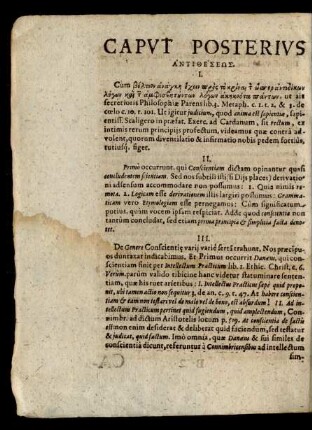 CAPUT POSTERIUS
ΑΝΤΙΘΕΣΕΩΣ.
I.
Cum βέλτιον ἀνάγκη ἔχειν πρὸς τὸ κρῖναι τ
λόγων καὶ τ ἀμφισβητούντων λόγων ἀκηκοότα πάντων, ut ait
secretioris Philosophiæ Parens lib. 4. Metaph. c. 1. t. 2. & 3. de
cœlo c. 10. t. 101. Ut igitur judicium, quod anima est sapientiæ, sapi-
entiss. Scaligero in præfat. Exerc. ad Cardanum, sit rectum, ex
intimis rerum principiis profectum, videamus quæ contrà ad-
volent, quorum diventilatio & infirmatio nobis pedem fortiùs,
tutiusq; figet.
II.
Primò occurrunt, qui Conscientiam dictam opinantur quasi
concludentem scientiam. Sed nos subtili isti (si Diis placet) derivatio-
ni adsensum accommodare non possumus: 1. Quia nimis remota.
2. Logicam esse derivationem illis largiri possumus: Gramma-
ticam vero Etymologiam esse pernegamus: Cùm significatum
potius, quàm vocem ipsam respiciat. Adde quod conscientia non
tantùm concludat, sed etiam prima principia & simplicia facta deno-
tet.
III.
De Genere Conscientiæ varij variè sertã trahunt. Nos præcipu-
os duntaxat indicabimus. Et Primus occurrit Danæus, qui con-
scientiam finit per Intellectum Practicum lib. 1. Ethic. Christ. c. 6.
Verùm parùm valido tibicine hanc videtur statuminare senten-
tiam, quæ his ruet arietibus: I. Intellectus Practicus sæpè quid propo-
nit, ubi tamen actio non sequitur 3. de an. c. 9. t. 47. At habere conscien-
tiam & tamen non testari vel de malè vel de benè, est absurdum II. Ad in-
tellectum Practicum pertinet quid fugiendum, quid amplectendum, Con-
nimbr. ad dictum Aristotelis locum p. 519. At conscientia de factis
est: non enim desiderat & deliberat quid faciendum, sed testatur
& judicat, quid factum. Imò omnia, quæ Danæus & sui similes de
conscientia dicunt, referuntur à Connimbricensibus ad intellectum
sim-